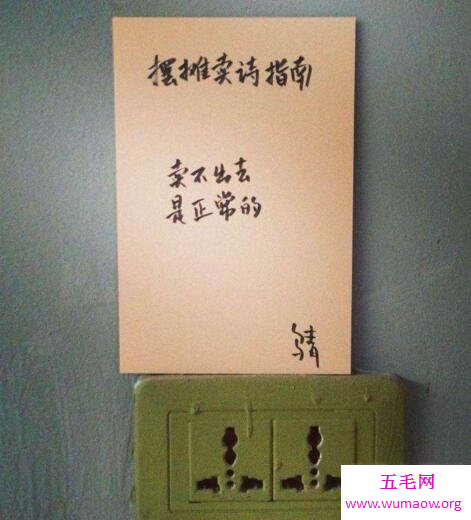 摆摊卖诗指南
卖不出去
是正常的
五毛网
www.wumaow.org